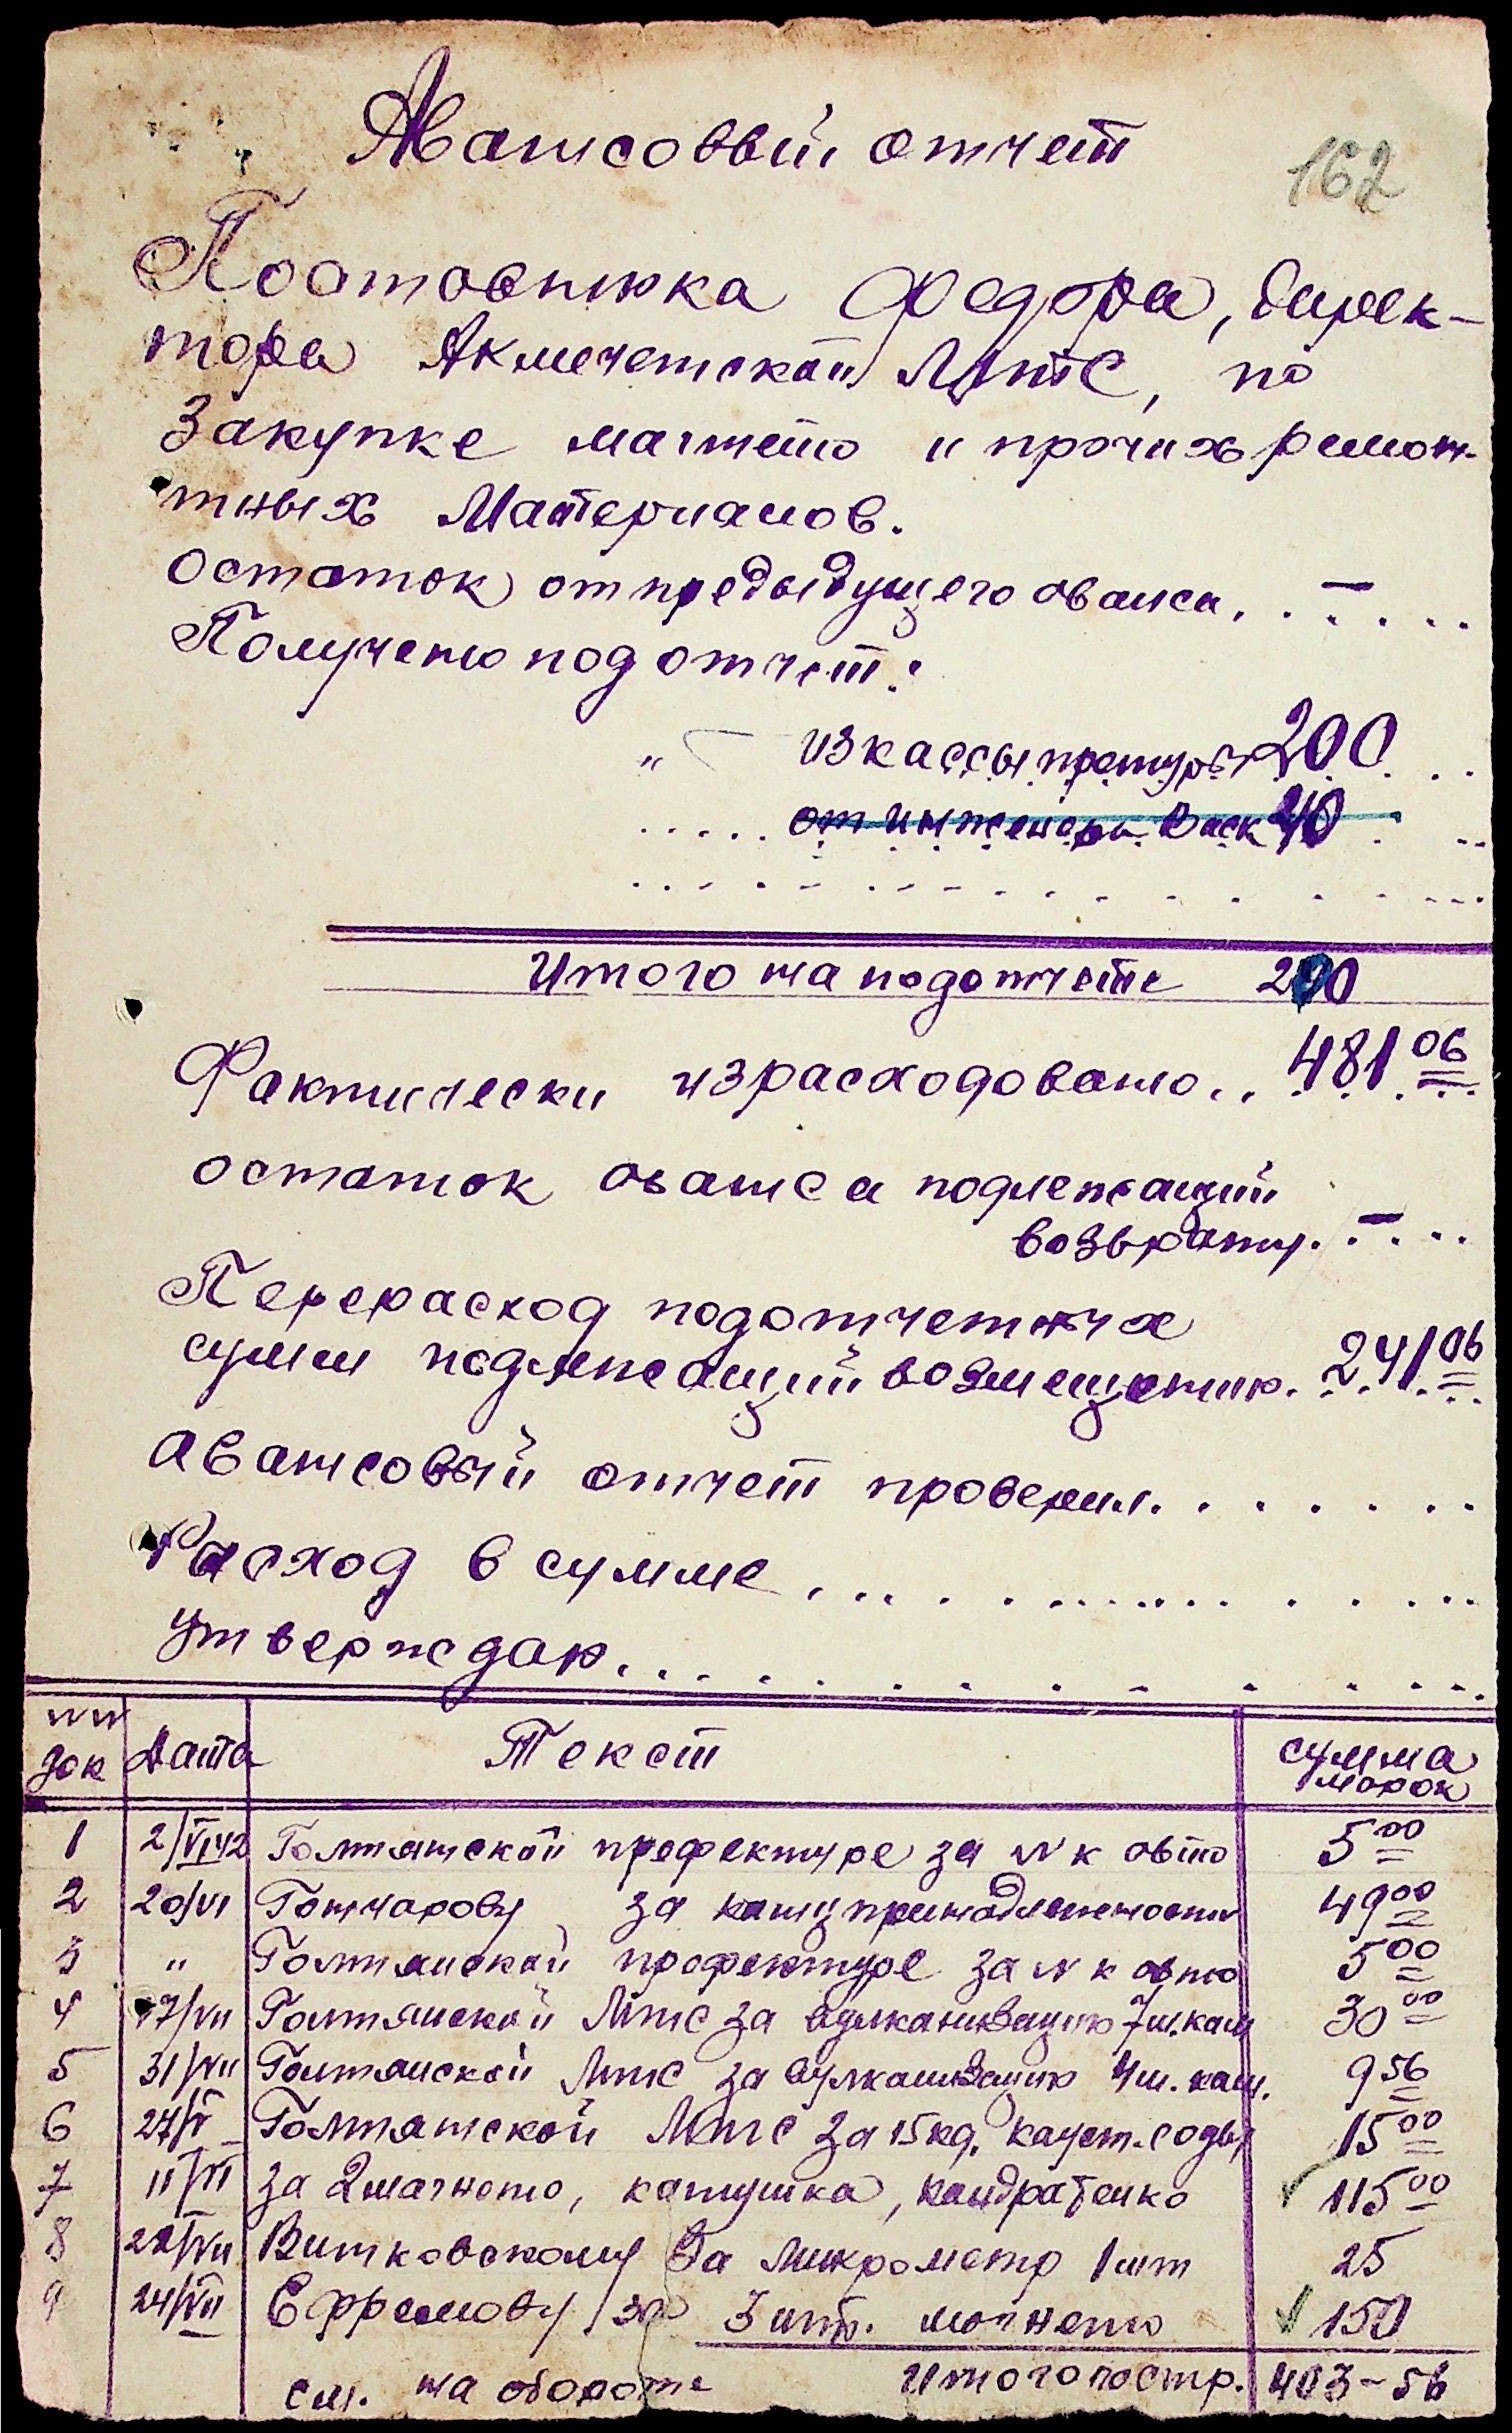 Авансовый отчет
162
Постовнюка Федора, дирек-
тора Акмечетской МТС, по
закупке магнето и прочих ремон-
тных материалов.
Остаток от предыдущего аванса. . — . . .
Получено под отчет:
" из кассы претуры 200 . .
. . . . . от инженера Васк 40 . . .
Итого на подотчете 200
Фактически израсходовано . . 481 06
Остаток аванса подлежащий
возврату. . — . .
Перерасход подотчетных
сумм подлежащий возмещению. 241 06
Авансовый отчет проверил. . . . . . .
Расход в сумме . . . . . . . . . . . .
утверждаю. . . . . . . . . . . .
№№ док Дата Текст сумма марок
1 2/VI 42 Голтянской префектуре за № к авто 5 00
2 20/VI Гончарову за канц принадлежности 49 00
3 " Голтянской префектуре за № к авто 5 00
4 17/VII Голтянской МТС за вулканизацию 7 ш. кам 30 00
5 31/VII Голтянской МТС за вулканизацию 4 ш. кам. 9 56
6 27/V Голтянской МТС за 15 кг. кауст. соды 15 00
7 11/VI за 2 магнето, катушка, Кандратенко 115 00
8 28/VII Витковскому за Микрометр 1 шт 25
9 24/VII Ефремову за 3 шт. магнето 150
см. на обороте Итого по стр. 403-56